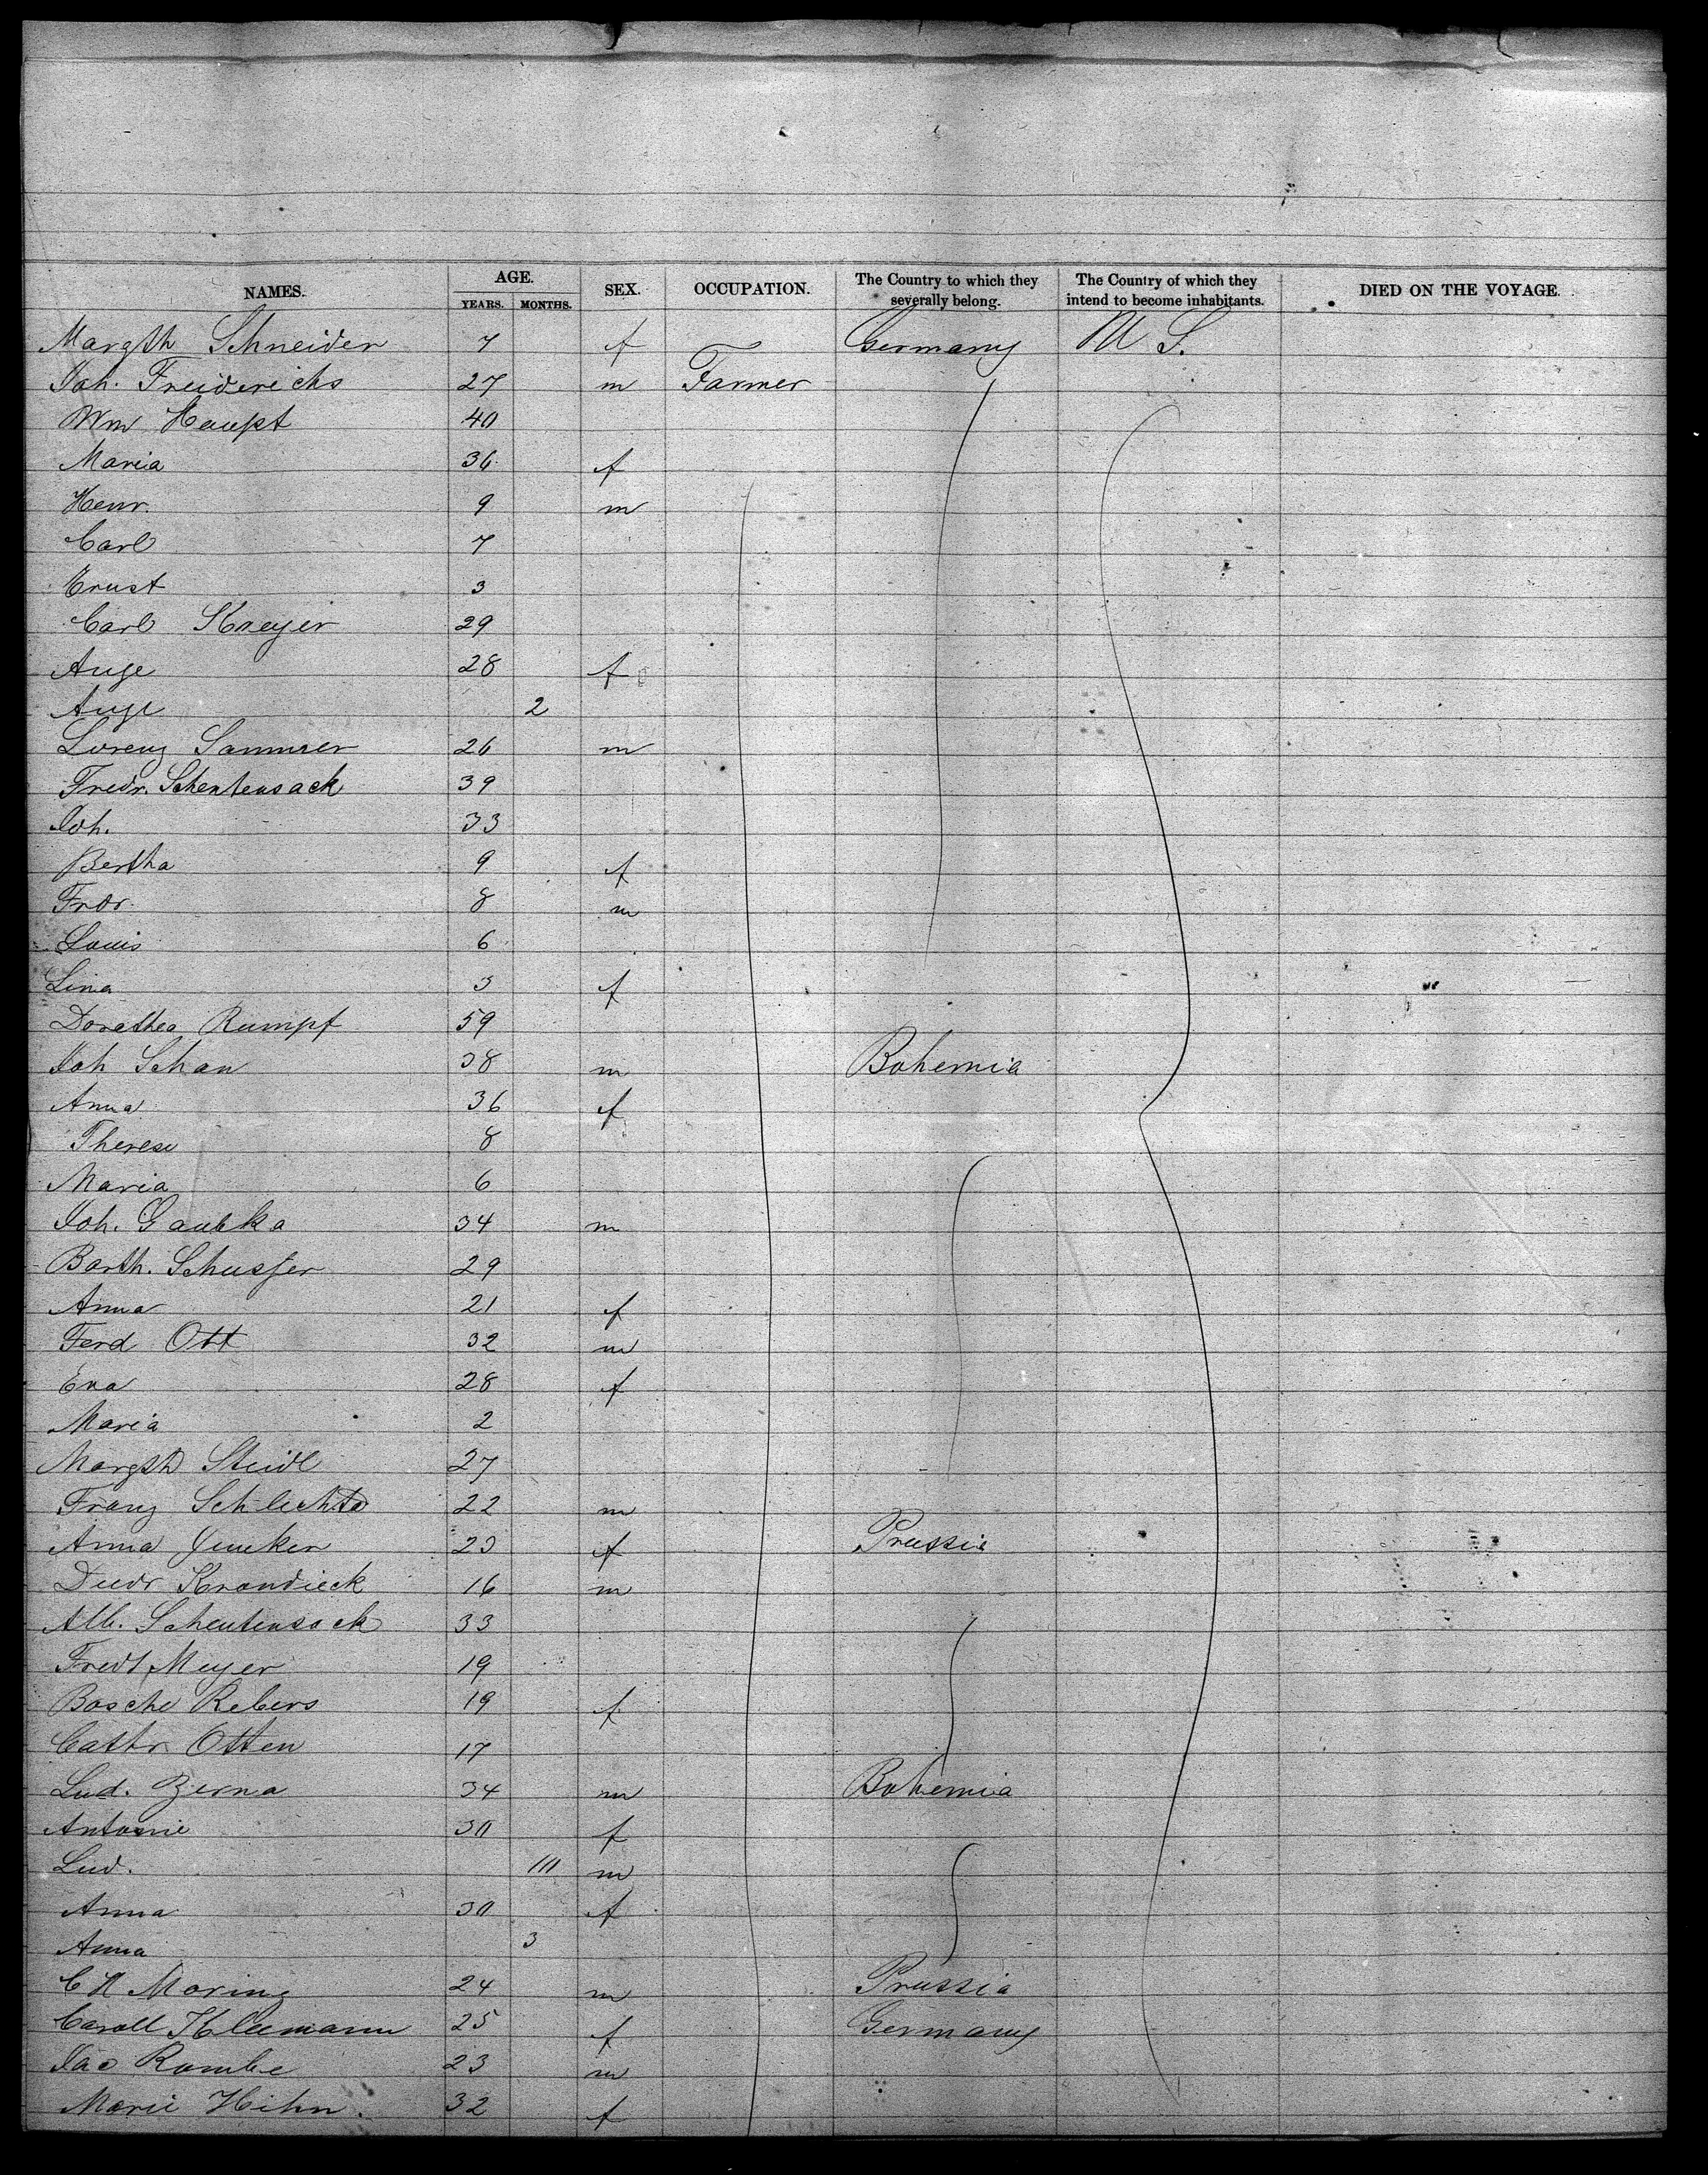 NAMES. AGE. YEARS. MONTHS. SEX. OCCUPATION. The Country to which they severally belong. The Country of which they intend to become inhabitants. DIED ON THE VOYAGE.
Margth Schneider 7 f Germany U S.
Joh. Freiderichs 27 m Farmer
Wm Haupt 40
Maria 36 f
Henr. 9 m
Carl 7
Ernst 3
Carl Kreyer 29
Auge 28 f
Auge 2
Lorenz Sammrer 26 m
Fredr. Schentensack 39
Joh. 33
Bertha 9 f
Frdr. 8 m
Louis 6
Lina 3 f
Dorathea Rumpf 59
Joh Schan 38 m Bohemia
Anna 36 f
Therese 8
Maria 6
Joh. Gaubka 34 m
Barth. Schusser 29
Anna 21 f
Ferd Ott 32 m
Eva 28 f
Maria 2
Margth Steidl 27
Franz Schlechta 22 m
Anna Juncker 23 f Prussia
Diedr Krandieck 16 m
Alb. Scheutensack 33
Fredr Meyer 19
Bosche Rebers 19 f
Cathr Otten 17
Lud. Zerna 34 m Bohemia
Antonie 30 f
Lud. m
Anna 30 f
Anna 3
C H Moring 24 m Prussia
Caroll Kleemann 25 f Germany
Jac Rombe 23 m
Marie Hihn. 32 f